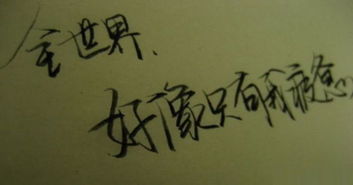 全世界、
好像只有我疲惫